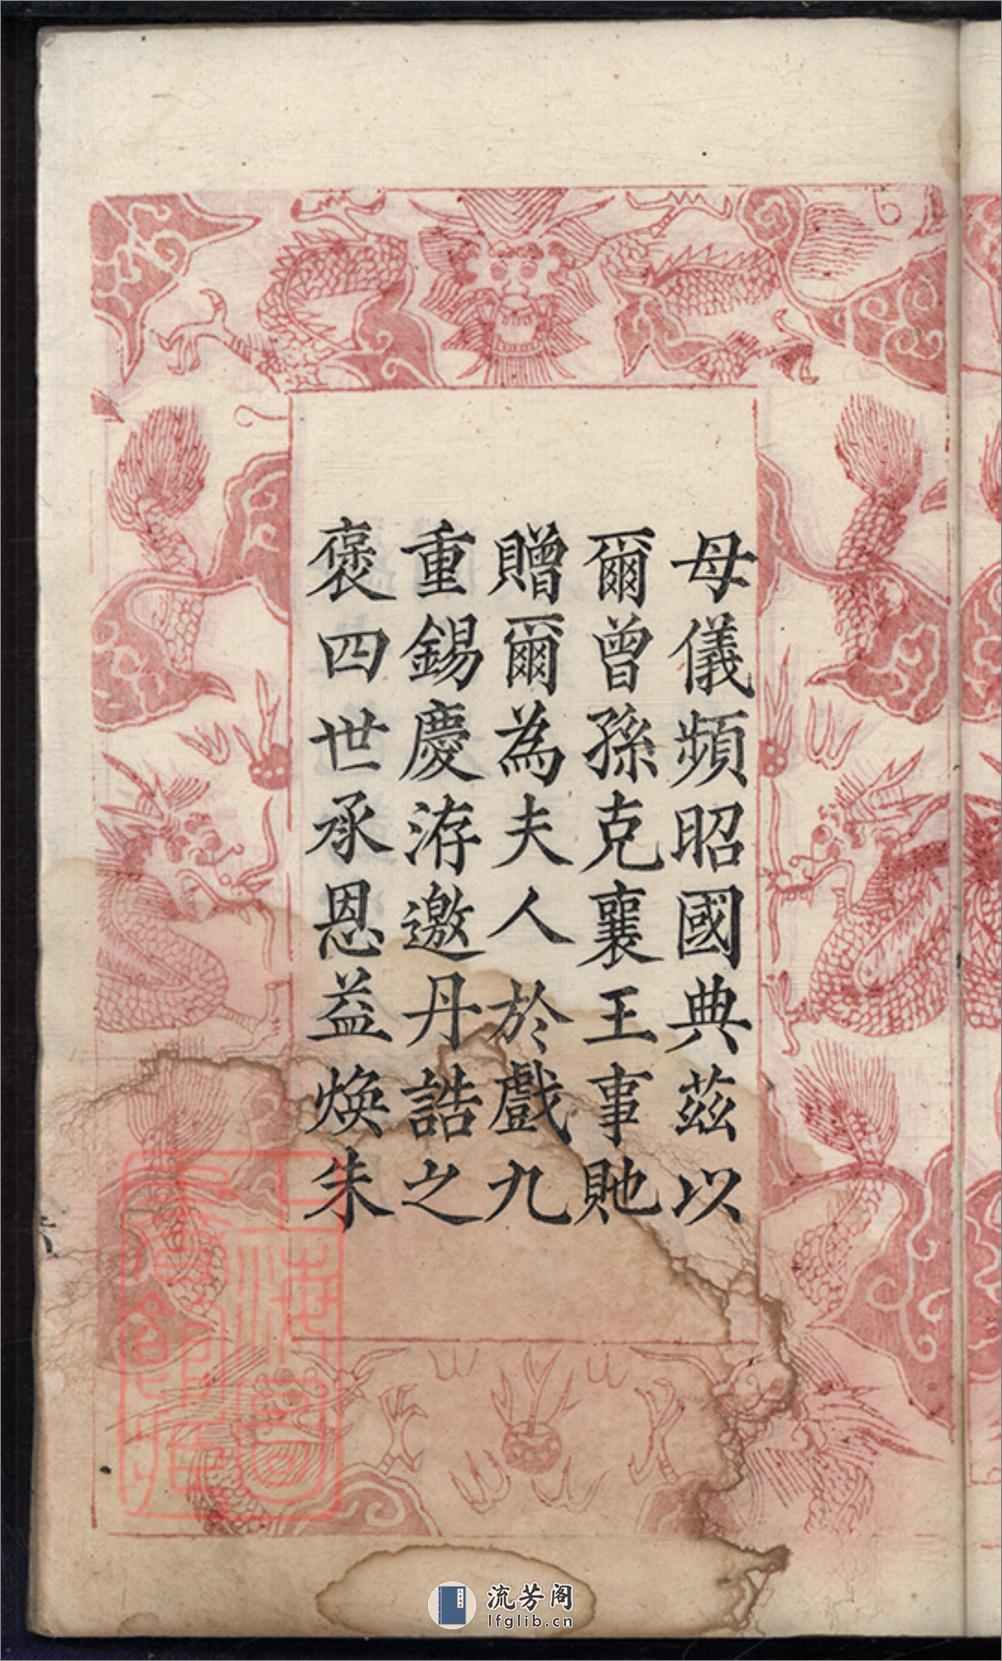 母儀頻昭國典茲以
爾曾孫克襄王事貤
贈爾為夫人於戲九
重錫慶洊邀丹誥之
褒四世承恩益煥朱
流芳阁
lfglib.cn